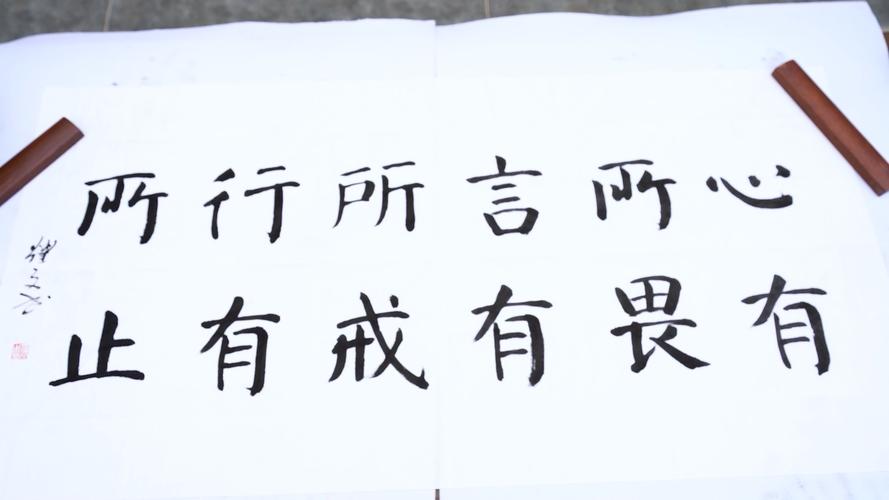 心有
所畏
言有
所戒
行有
所止